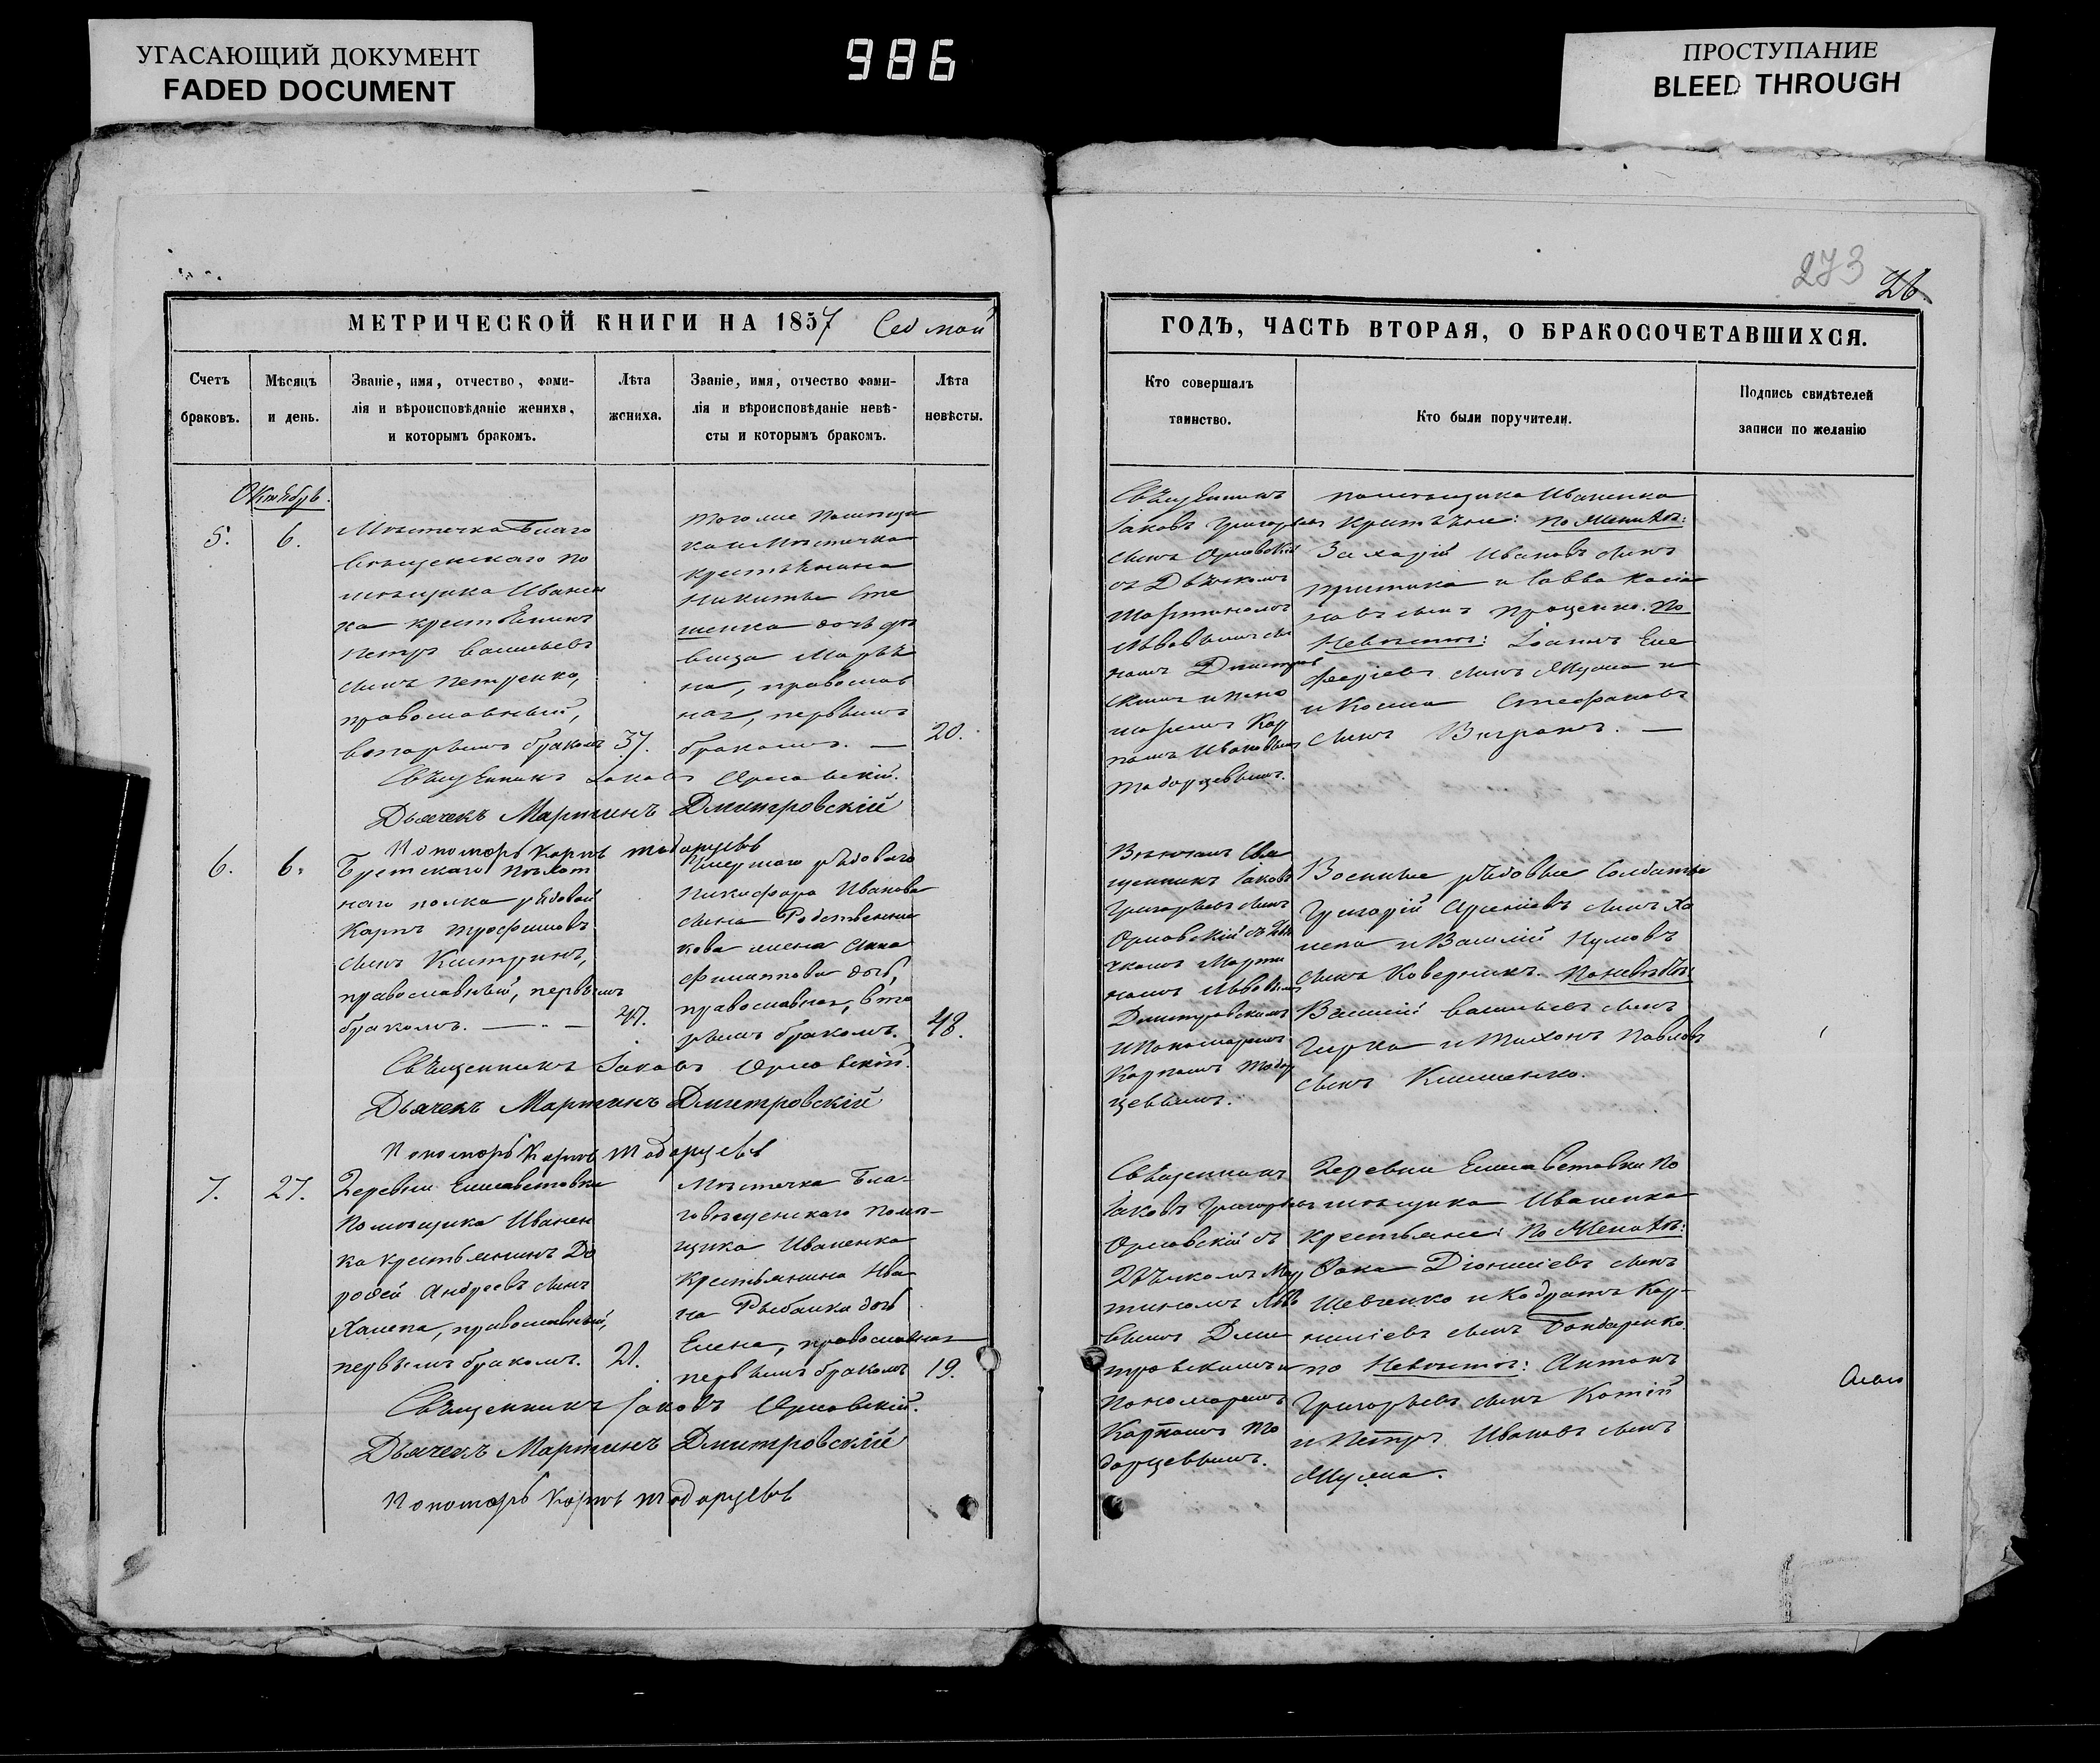 УГАСАЮЩИЙ ДОКУМЕНТ
FADED DOCUMENT
986
ПРОСТУПАНИЕ
BLEED THROUGH
273
26
МЕТРИЧЕСКОЙ КНИГИ НА 1857 Седмой
Счетъ
браковъ.
Мѣсяцъ
и день.
Званіе, имя, отчество, фами-
лія и вѣроисповѣданіе жениха,
и которымъ бракомъ.
Лѣта
жениха.
Званіе, имя, отчество фами-
лія и вѣроисповѣданіе невѣ-
сты и которымъ бракомъ.
Лѣта
невѣсты.
Октябрь.
5.
6.
Мѣстечка Благо
вѣщенскаго по
мѣщика Иванен
ка крестьянинъ
Петръ Васильевъ
сынъ Петренко,
православный,
вторымъ бракомъ
37.
Тогоже помѣщи
ка и мѣстечка
крестьянина
Никиты Сте
ценка дочь дѣ
вица Марѣя
на, православ
ная, первымъ
бракомъ. —
20.
Священникъ Іаковъ Орловскій.
Дьячекъ Мартинъ Дмитровскій
Пономарь Карпъ Тодорцевъ
6.
6.
Брестскаго пѣхот
наго полка рядовой
Карпъ Трофимовъ
сынъ Китринъ,
православный, первымъ
бракомъ. — . —
47.
Умершаго рядоваго
Никифора Иванова
сына Родственни
кова жена Анна
Филиппова дочь,
православная, вто
рымъ бракомъ.
48.
Священникъ Іаковъ Орловскій.
Дьячекъ Мартинъ Дмитровскій
Пономарь Карпъ Тодорцевъ
7.
27.
Деревни Елисаветовки
помѣщика Иванен
ка крестьянинъ До
рофей Андреевъ сынъ
Халепа, православный,
первымъ бракомъ.
21.
Мѣстечка Бла-
говѣщенскаго помѣ-
щика Иваненка
крестьянина Ива
на Рыбалки дочь
Елена, православная
первымъ бракомъ
19.
Священникъ Іаковъ Орловскій.
Дьячекъ Мартинъ Дмитровскій
Пономарь Карпъ Тодорцевъ
ГОДЪ, ЧАСТЬ ВТОРАЯ, О БРАКОСОЧЕТАВШИХСЯ.
Кто совершалъ
таинство.
Кто были поручители.
Подпись свидѣтелей
записи по желанію
Священникъ
Іаковъ Григорьевъ
сынъ Орловскій
съ Дьячкомъ
Мартиномъ
Львовымъ сы
номъ Дмитров
скимъ и поно
маремъ Кар
помъ Ивановымъ
Тодорцевымъ.
помѣщика Иваненка
крестьяне: по женихѣ:
Захарій Ивановъ сынъ
Притика и Савва Касія
новъ сынъ Проценко. По
невѣстѣ: Іоаннъ Еле
феріевъ сынъ Жужа и
и Косма Стефановъ
сынъ —
Вѣнчалъ Свя
щенникъ Іаковъ
Григорьевъ сынъ
Орловскій съ Дья
чкомъ Марти
номъ Львовымъ
Дмитровскимъ
и Пономаремъ
Карпомъ Тодор
цевымъ.
Военные рядовые Солдаты
Григорій Арсеніевъ сынъ Ха
лепа и Василій Наумовъ
сынъ Коверникъ. По невѣстѣ:
Василій Васильевъ сынъ
и Тихонъ Павловъ
сынъ Клименко.
Священникъ
Іаковъ Григорьевъ
Орловскій съ
Дьячкомъ Мар
тиномъ Льво
вымъ Дми
тровскимъ и
пономаремъ
Карпомъ То
дорцевымъ.
Деревни Елисаветовки по
мѣщика Иваненка
крестьяне: по женихѣ:
Фока Діонисіевъ сынъ
Шевченко и Кодратъ Кор-
ниліевъ сынъ Бондаренко.
по невѣстѣ: Антонъ
Григорьевъ сынъ Котій
и Петръ Ивановъ сынъ
Жужа.